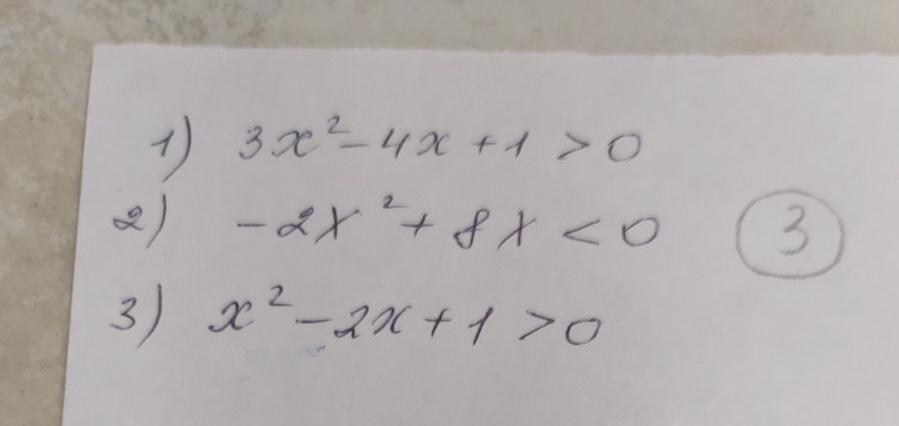 1) 3x² - 4x + 1 > 0
2) -2x² + 8x < 0
3
3) x² - 2x + 1 > 0